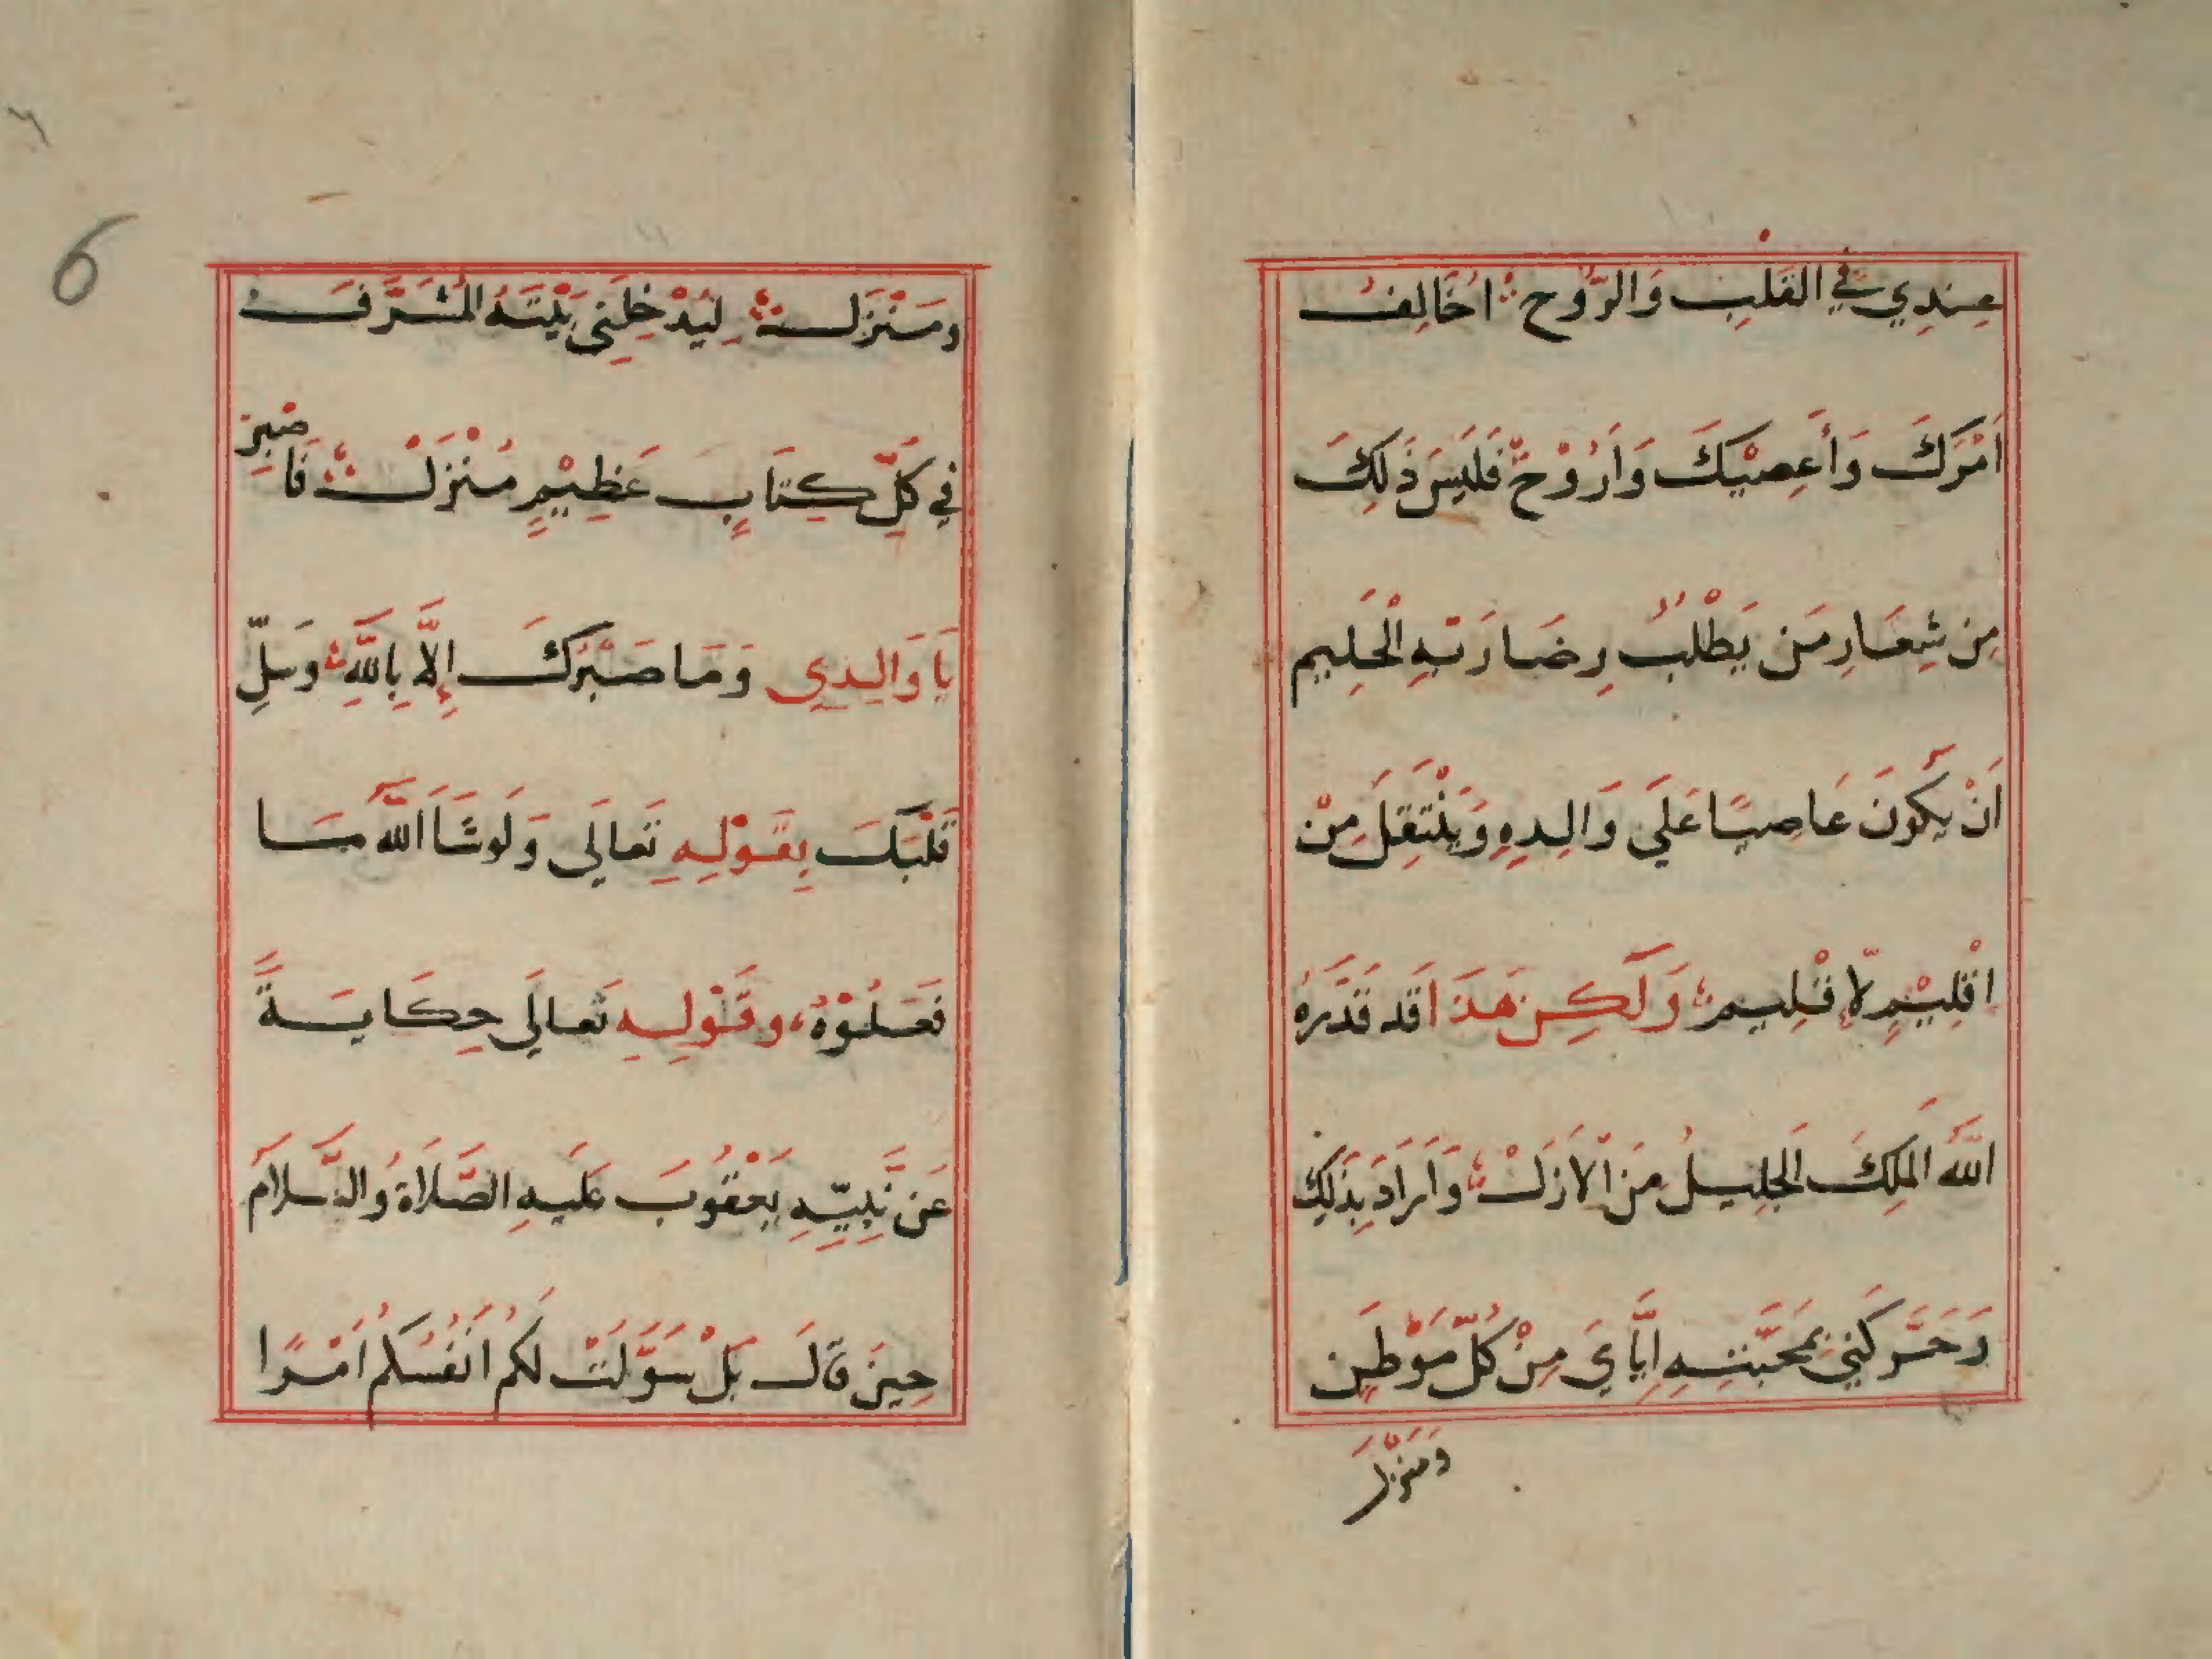 عِندِي فِي القَلبِ وَالرُّوح ؛ اُخَالِفُ
اَمْرَكَ وَأَعصِيْكَ وَاَرُوْحْ فَلَيسَ ذَلِكَ
مِن شِعَارِ مَن يَطْلُبُ رِضَا رَبِّهِ الْحَلِيمِ
اَنْ يَكُونَ عَاصِيًا عَلَي وَالِدِهِ وَيَنْتَقِلَ مِنْ
اقْلِيْمٍ لِاقْلِيم ؛ وَلَكِن هَذَا قَد قَدَّرَهُ
اللَّه المَلِكُ الجَلِيلُ مِنَ الْاَزَلْ ؛ وَاَرَادَ بِذَلِكَ
وَحَرَّكَنِي بِمَحَبَّتِهِ اِيَّايَ مِنْ كُلِّ مَوْطِنِ
وَمَنْزَل
6
وَمَنْزَل ؛ لِيُدْخِلَنِي بَيْتَهُ المُشَرَّفَ
فِي كُلِّ كِتَابٍ عَظِيْمٍ مُنْزَلْ ؛ فَاصْبِرْ
يَا وَالِدِي وَمَا صَبْرُكَ إِلَّا بِاللَّهِ ؛ وسَلِّ
قَلْبَكَ بِقَوْلِهِ تَعالَى وَلَوشَا اللَّه مَا
فَعَلُوْهُ ، وقَوْلِهِ تَعالَي حِكَايَةً
عَن نَّبِيِّهِ يَعْقُوبَ عَلَيهِ الصَّلَاة وَالسَّلامَ
حِينَ قَالَ بَلْ سَوَّلَتْ لَكُم اَنفُسُكُم اَمْرًا